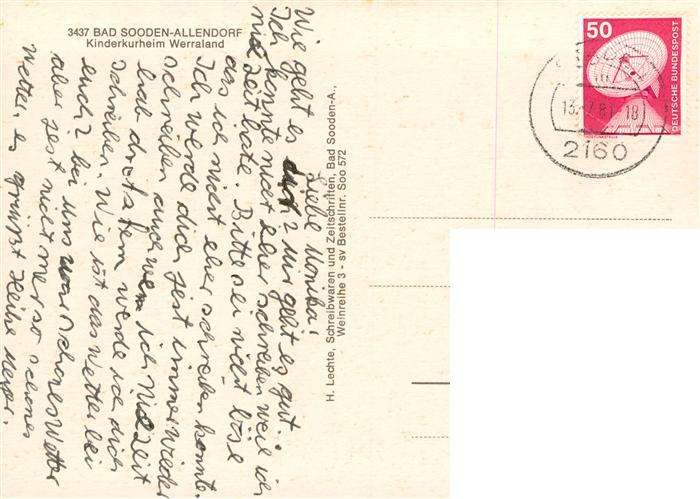 3437 BAD SOODEN-ALLENDORF
Kinderkurheim Werraland
50
DEUTSCHE BUNDESPOST
13.-7.81-18
2160
Liebe Monika!
Wie geht es dich? Mir geht es gut.
Ich konnte nicht eher schreiben weil ich
nie Zeit hate. Bitte sei nicht böse
das ich nicht eher schreiben konnte.
Ich werde dich jest immer wieder
schreiben auch wenn ich nie Zeit
hab trotzdem werde ich dich
schreiben. Wie ist das Wetter bei
euch? bei uns war schones Wetter
aber jest nicht mer so schones
Wetter. es grüßt Heike Meyer.
H. Lechte, Schreibwaren und Zeitschriften, Bad Sooden-A.,
Weinreihe 3 - sv Bestellnr. Soo 572